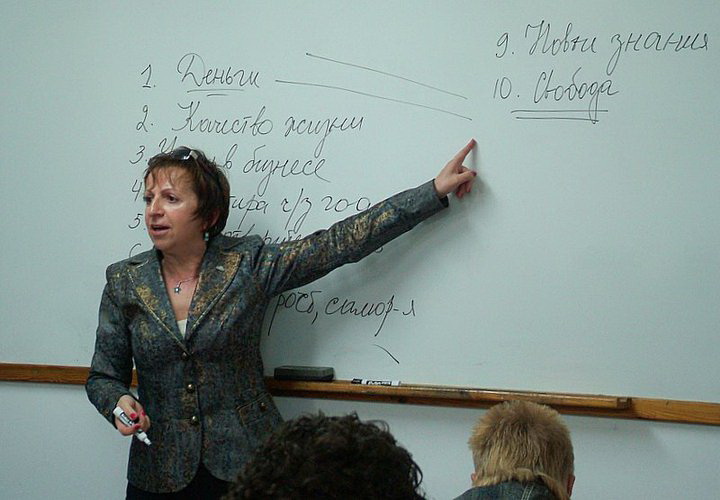 1. Деньги
2. Качество жизни
3. в бизнесе
4. ч/з год
5.
рост, самор-я
9. Новые знания
10. Свобода